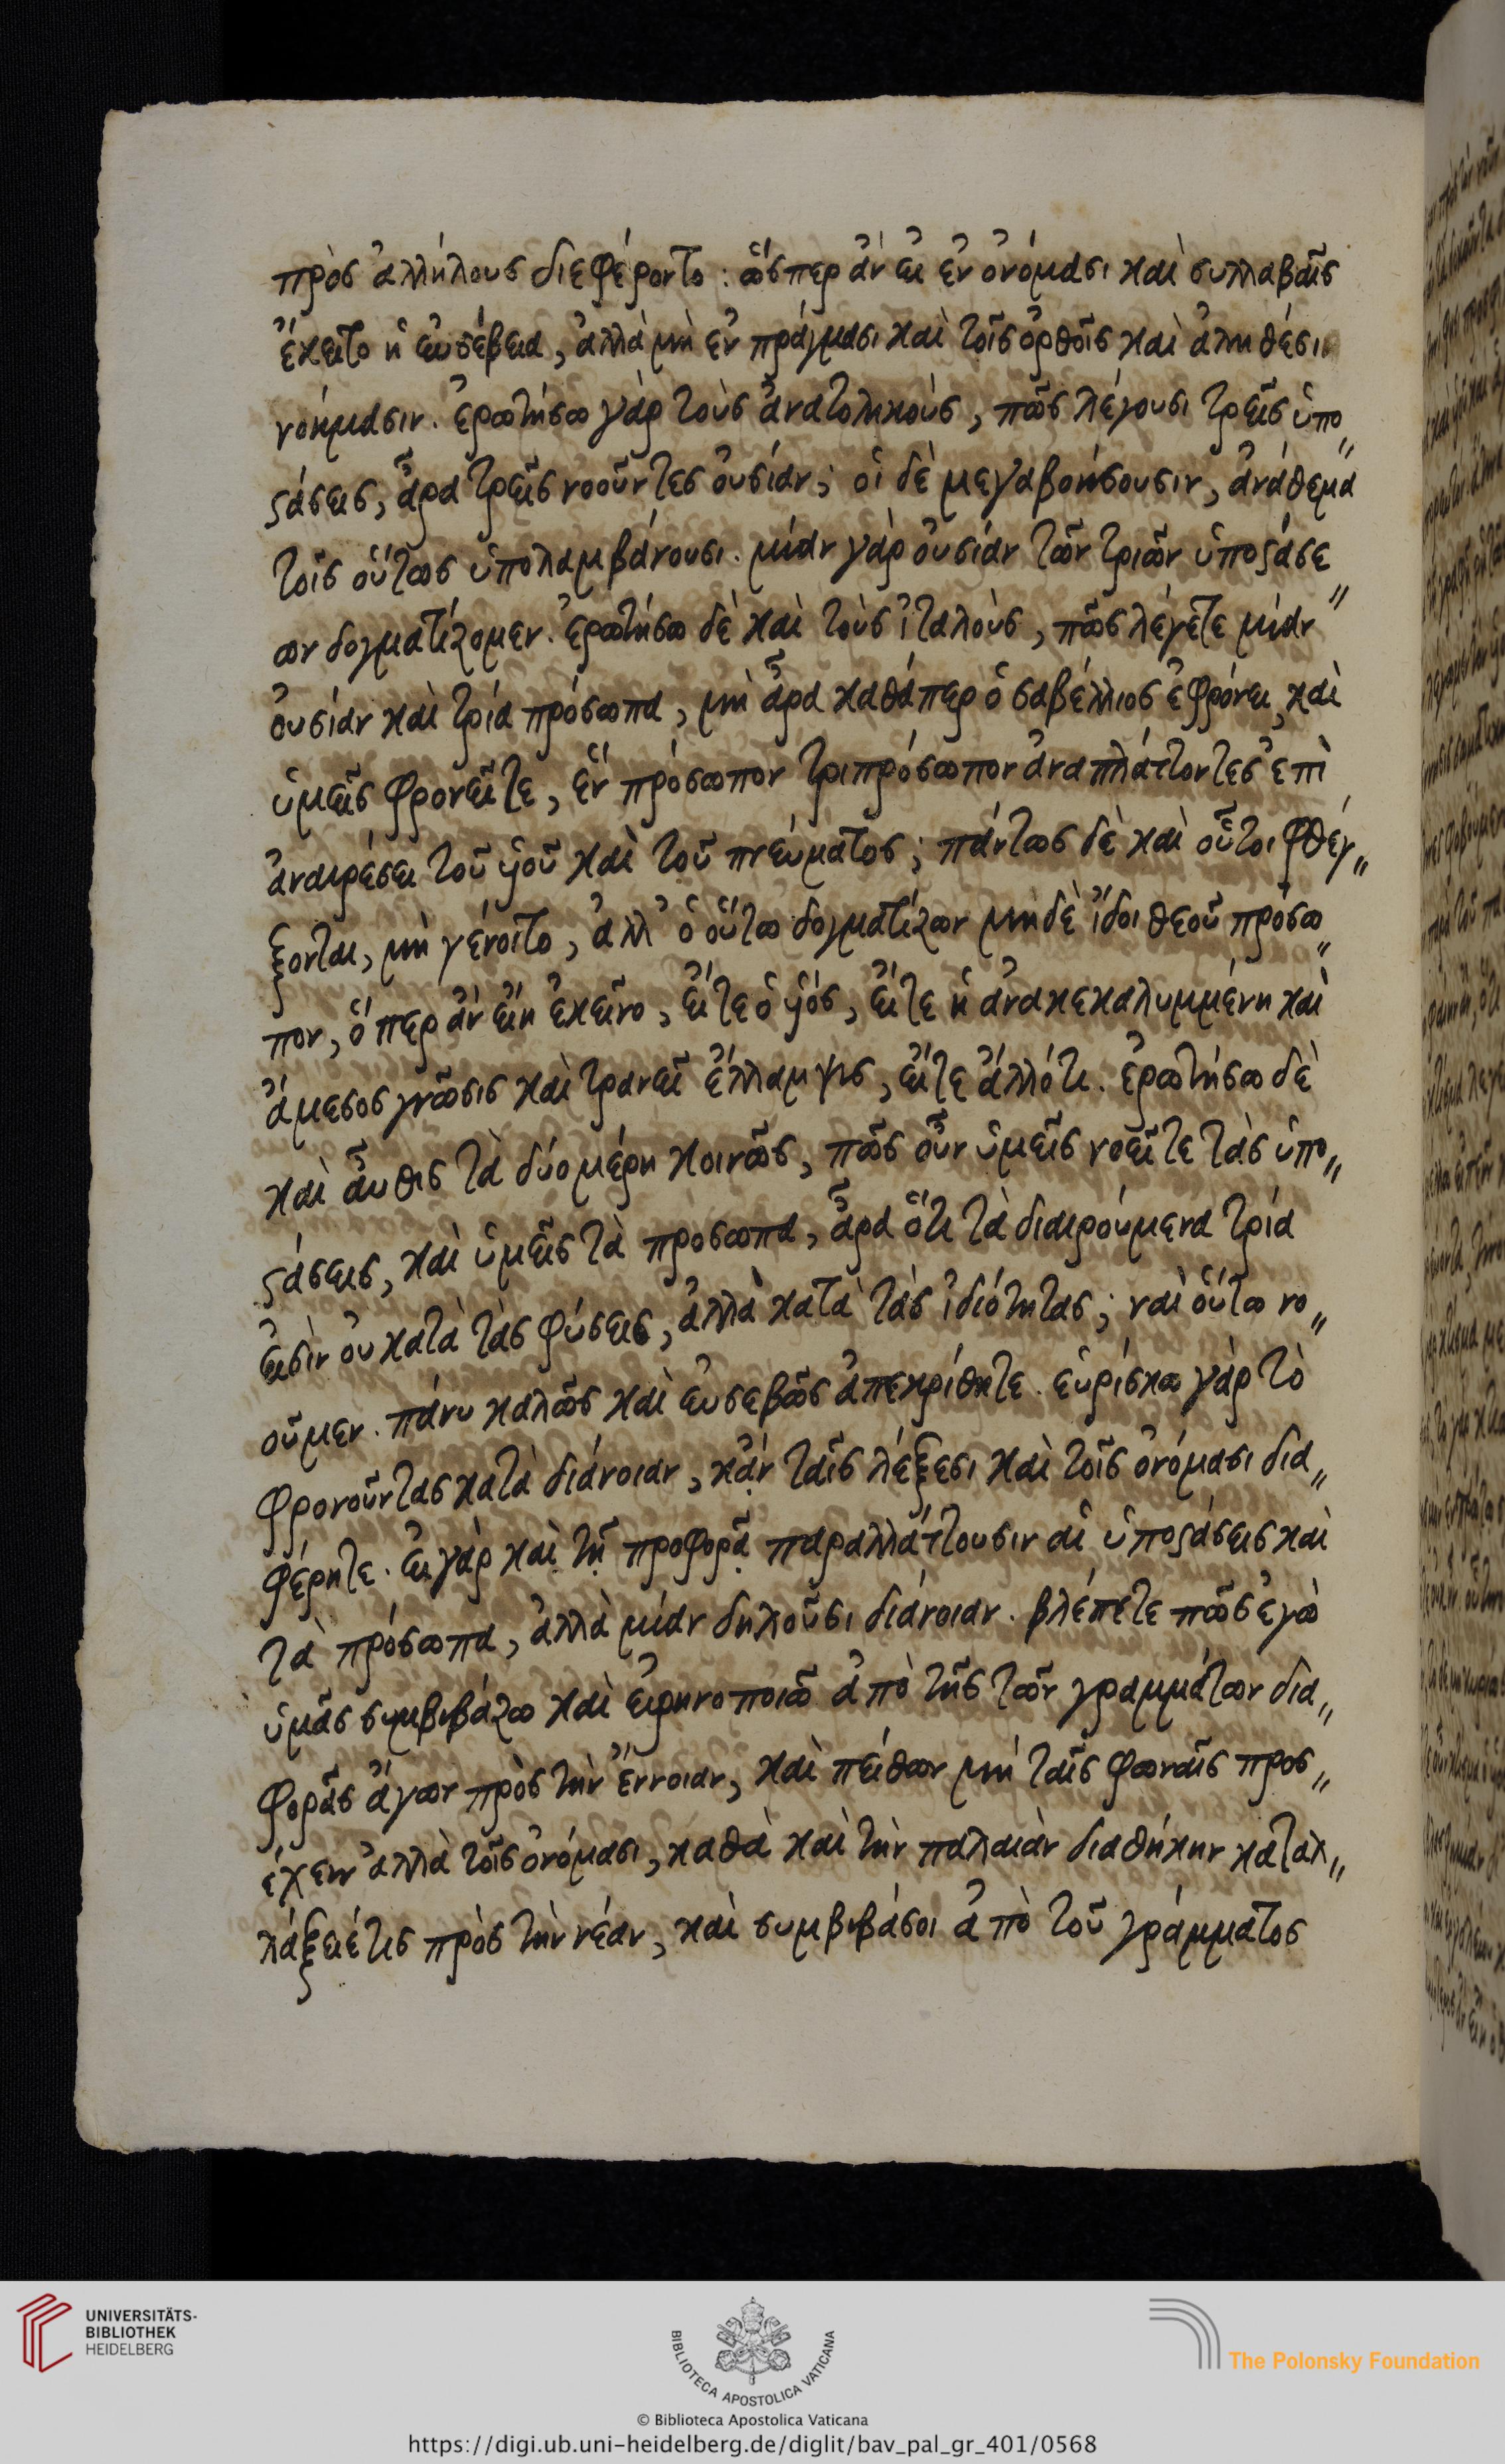 πρὸς ἀλλήλους διεφέροντο: ὥσπερ ἂν εἰ ἐν ὀνόμασι καὶ συλλαβαῖς
ἔκειτο ἡ εὐσέβεια, ἀλλὰ μὴ ἐν πράγμασι καὶ τοῖς ὀρθοῖς καὶ ἀληθέσι
νοήμασιν. ἐρωτήσω γὰρ τοὺς ἀνατολικοὺς, πῶς λέγουσι τρεῖς ὑπο〃
ϛάσεις, ἆρα τρεῖς νοοῦντες οὐσίαν; οἱ δὲ μεγαβοήσουσιν, ἀνάθεμα
τοῖς οὕτως ὑπολαμβάνουσι. μίαν γὰρ οὐσίαν τῶν τριῶν ὑποϛάσε〃
ων δογματίζομεν. ἐρωτήσω δὲ καὶ τοὺς ἰταλοὺς, πῶς λέγετε μίαν
οὐσίαν καὶ τρία πρόσωπα, μὴ ἆρα καθάπερ ὁ σαβέλλιος ἐφρόνει, καὶ
ὑμεῖς φρονεῖτε, ἓν πρόσωπον τριπρόσωπον ἀναπλάττοντες ἐπὶ
ἀναιρέσει τοῦ υἱοῦ καὶ τοῦ πνεύματος; πάντως δὲ καὶ οὗτοι φθέγ〃
ξονται, μὴ γένοιτο, ἀλλ' ὁ οὕτω δογματίζων μηδὲ ἴδοι θεοῦ πρόσω〃
πον, ὅπερ ἂν εἴη ἐκεῖνο, εἴτε ὁ υἱός, εἴτε ἡ ἀνακεκαλυμμένη καὶ
ἄμεσος γνῶσις καὶ τρανεῖ ἔλλαμψις, εἴτε ἄλλότι. ἐρωτήσω δὲ
καὶ αὖθις τὰ δύο μέρη κοινῶς, πῶς οὖν ὑμεῖς νοεῖτε τὰς ὑπο〃
ϛάσεις, καὶ ὑμεῖς τὰ πρόσωπα, ἆρα ὅτι τὰ διαιρούμενα τρία
εἰσὶν οὐ κατὰ τὰς φύσεις, ἀλλὰ κατὰ τὰς ἰδιότητας; ναὶ οὕτω νο〃
οῦμεν. πάνυ καλῶς καὶ εὐσεβῶς ἀπεκρίθητε. εὑρίσκω γὰρ τὸ
φρονοῦντας κατὰ διάνοιαν, κἂν ταῖς λέξεσι καὶ τοῖς ὀνόμασι δια〃
φέρητε. εἰ γὰρ καὶ τῇ προφορᾷ παραλλάττουσιν αἱ ὑποϛάσεις καὶ
τὰ πρόσωπα, ἀλλὰ μίαν δηλοῦσι διάνοιαν. βλέπετε πῶς ἐγὼ
ὑμᾶς συμβιβάζω καὶ εἰρηνοποιῶ ἀπὸ τῆς τῶν γραμμάτων δια〃
φορᾶς ἄγων πρὸς τὴν ἔννοιαν, καὶ πείθων μὴ ταῖς φωναῖς προσ〃
έχειν ἀλλὰ τοῖς ὀνόμασι, καθὰ καὶ τὴν παλαιὰν διαθήκην καταλ〃
λάξειέ τις πρὸς τὴν νέαν, καὶ συμβιβάσοι ἀπὸ τοῦ γράμματος
UNIVERSITÄTS-
BIBLIOTHEK
HEIDELBERG
BIBLIOTECA APOSTOLICA VATICANA
The Polonsky Foundation
© Biblioteca Apostolica Vaticana
https://digi.ub.uni-heidelberg.de/diglit/bav_pal_gr_401/0568